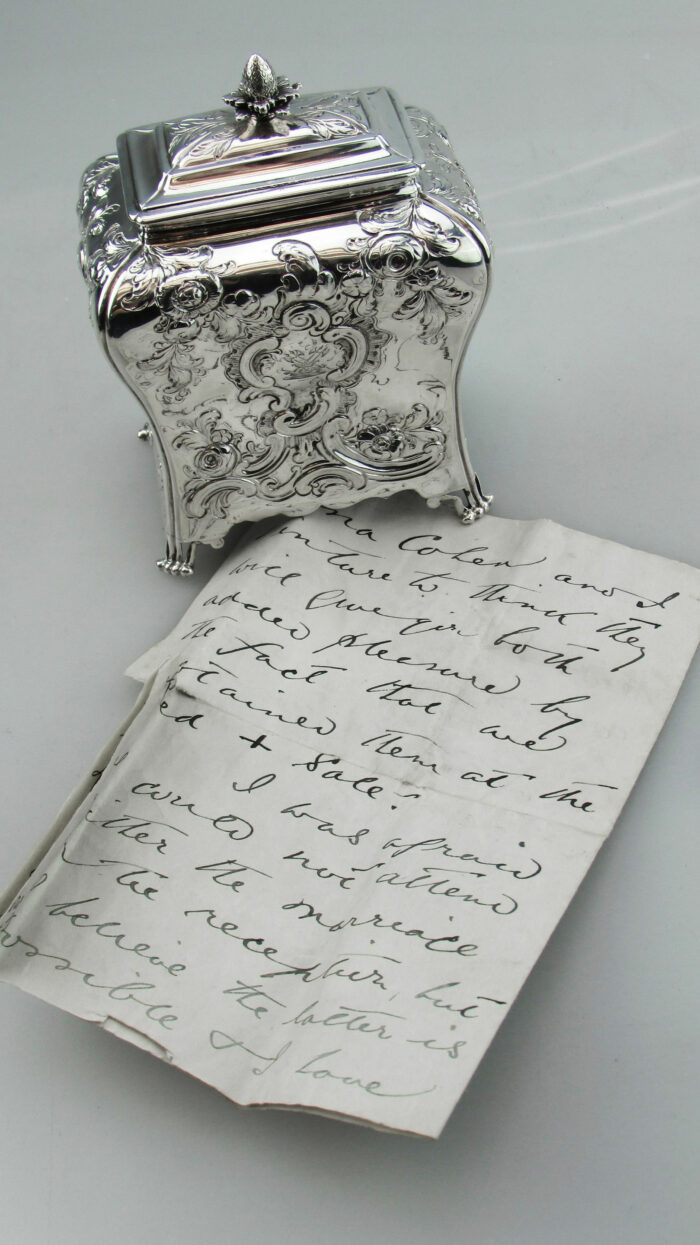 na Cohen and I
venture to think they
will give you both
added pleasure by
the fact that we
tained them at the
ed + Sale.
I was afraid
I could not attend
either the marriage
or the reception, but
I believe the latter is
possible & I have